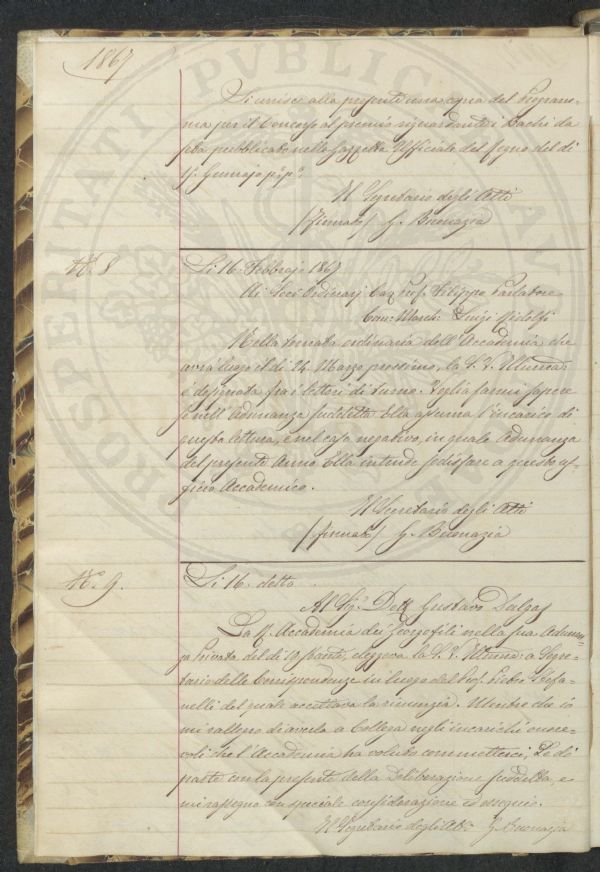 1867
Si unisce alla presente una copia del Program-
ma per il Concorso al premio riguardante i Bachi da
seta pubblicato nella Gazzetta Ufficiale del Regno del dì
Gennajo p.p.º
Il Segretario degli Atti
/firmato/ G. Buonazia
N. 8
Li 16. Febbrajo 1867
Ai Soci Ordinarj Cav. Prof. Filippo Parlatore
Com: March: Luigi Ridolfi
Nella tornata ordinaria dell'Accademia che
avrà luogo il dì 24 Marzo prossimo, la S. V. Illuma:
è designata fra i lettori di turno. Voglia farmi sapere
se nell'Adunanza suddetta Ella assuma l'incarico di
questa lettura, e nel caso negativo, in quale Adunanza
del presente Anno Ella intende sodisfare a questo uf-
ficio Accademico.
Il Segretario degli Atti
/firmato/ G. Buonazia
N. 9.
Li 16. detto
Al Sig.r Dott. Gustavo Dalgas
La R. Accademia dei Georgofili nella sua Adunan-
za Privata del dì 10 stante, eleggeva la S. V. Illma: a Segre-
tario delle Corrispondenze in luogo del Prof. Pietro Stefa-
nelli del quale accettava la rinunzia. Mentre che io
mi rallegro di averla a Collega negli incarichi onore-
voli che l'Accademia ha voluto commetterci, Le dò
parte con la presente della Deliberazione suddetta, e
mi rassegno con speciale considerazione ed ossequio.
Il Segretario degli Atti G. Buonazia
PROSPERITATI PUBLICAE AV